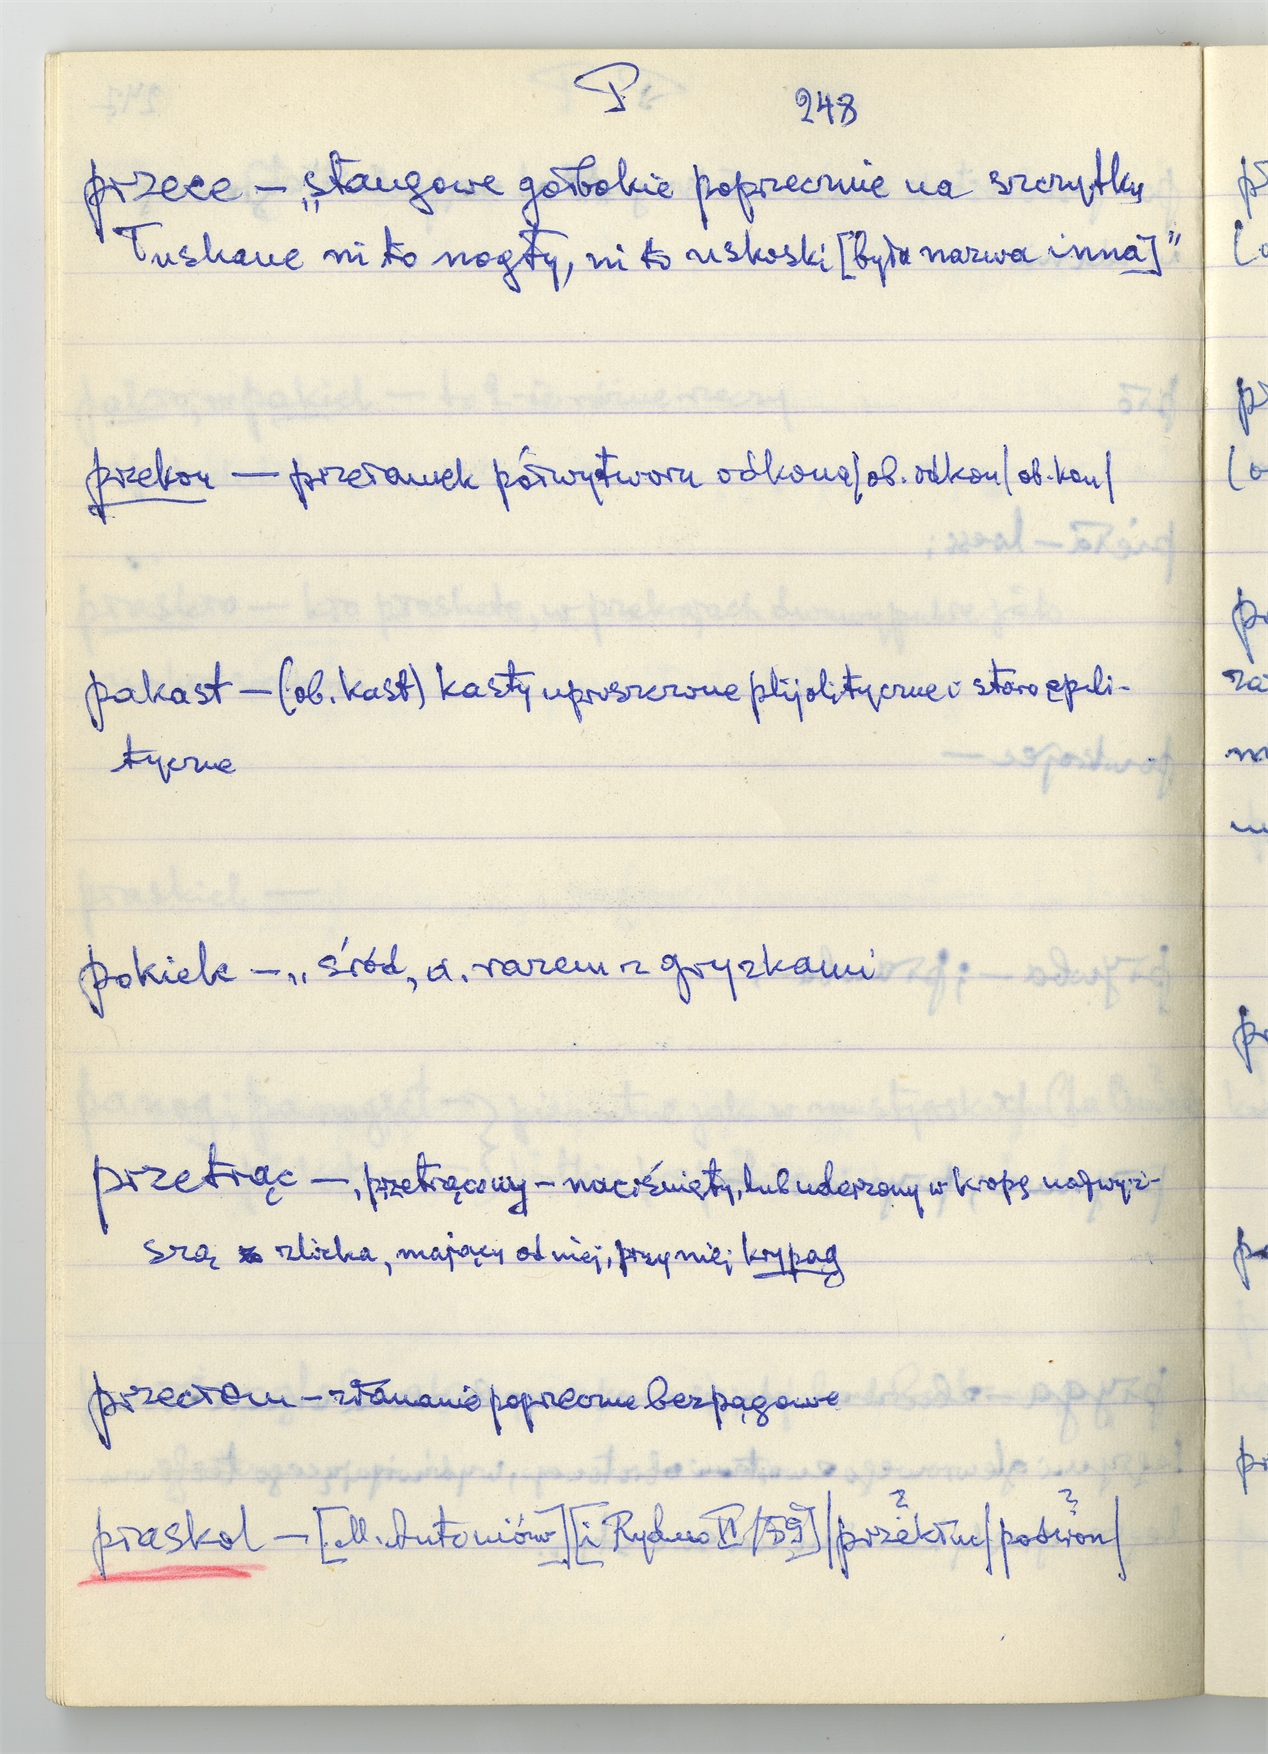 P 248
przece – „stangowe gołbokie poprzecznie na szczytku
łuskane ni to nogły, ni to uskoski [była nazwa inna]”
przekon — przełamek półwytworu odkona/ob. odkon/ob. kon/
pakast – (ob. kast) kasty uproszczone plijolityczne i staroepoli-
tyczne
pokiek – „ śród, a. razem z gryzkami
przetrąc –, przetrącony – naciśnięty, lub uderzony w kropę najwyż-
szą zlicka, mający od niej, przy niej krypąg
przecłom – złamanie poprzeczne bezpągowe
praskol – [M. Antoniów][i Rydno II/59]/przekłm/podwon/